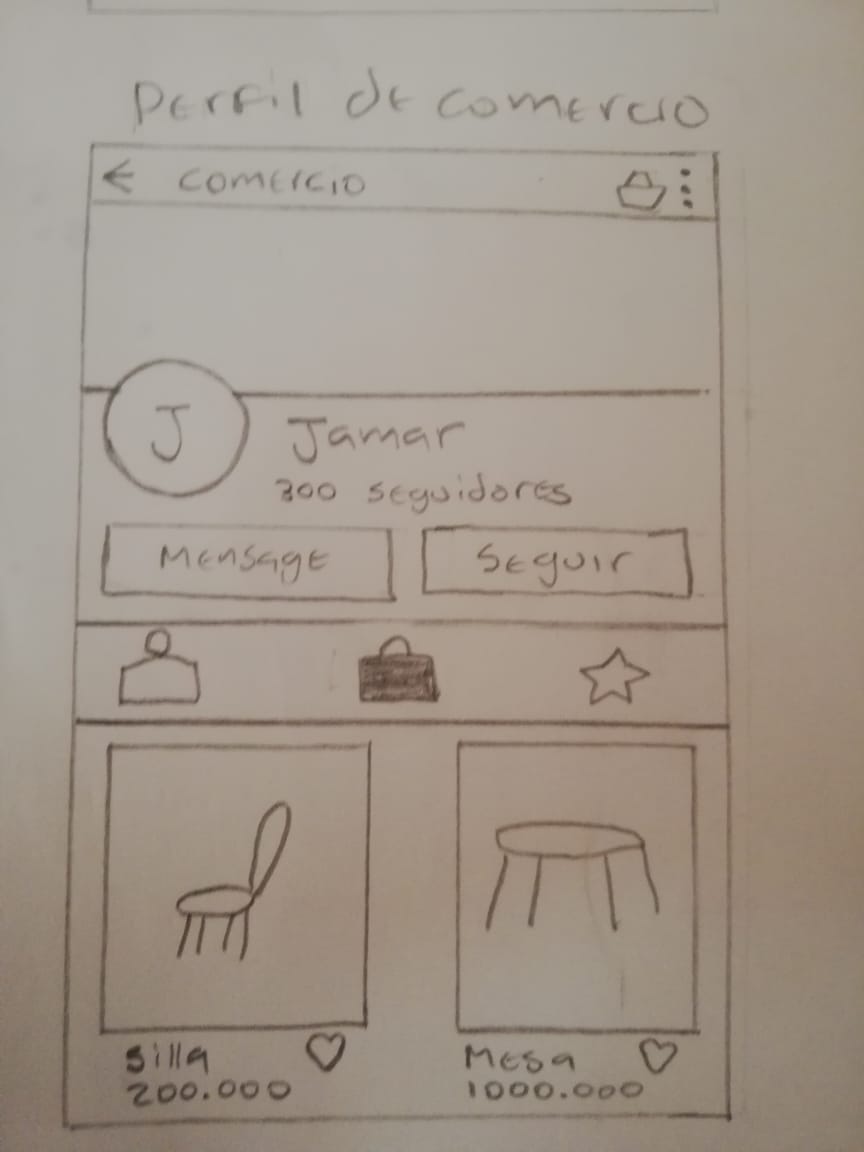 Perfil de comercio
comercio
J
Jamar
300 seguidores
Mensage
Seguir
silla
200.000
Mesa
1000.000